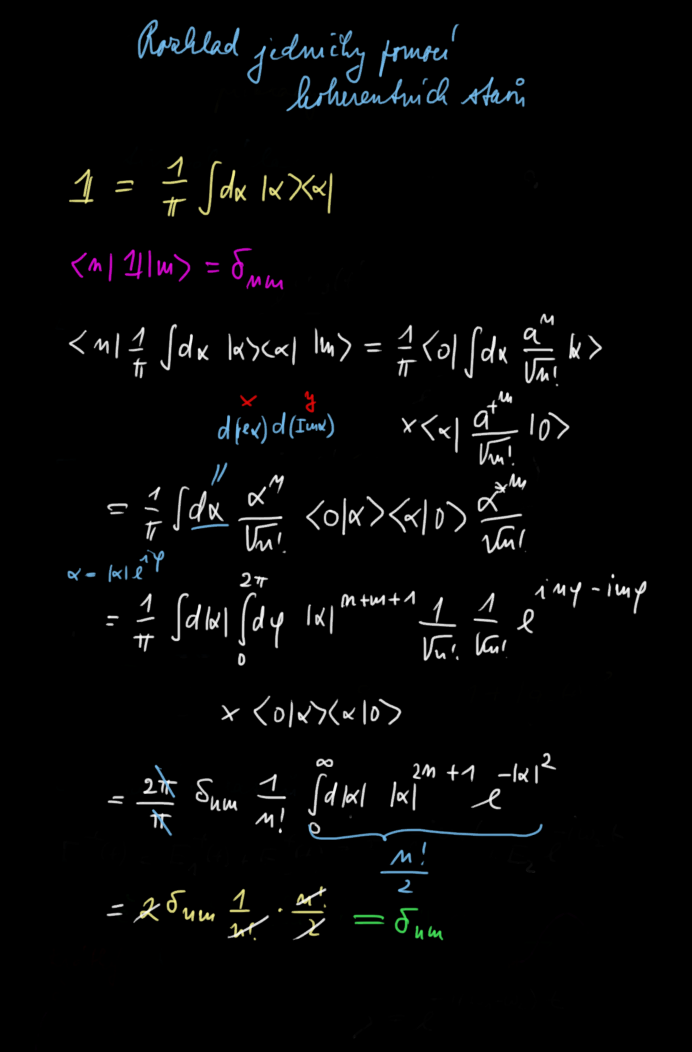 Rozklad jedničky pomocí
koherentních stavů
𝟙 = 1/π ∫dα |α><α|
<n|𝟙|m> = δₙₘ
<n| 1/π ∫dα |α><α| |m> = 1/π <0| ∫dα aⁿ/√n! |α>
x y
d(Re α) d(Im α)
× <α| a⁺ᵐ/√m! |0>
= 1/π ∫dα αⁿ/√n! <0|α><α|0> α*ᵐ/√m!
α = |α| e^{iφ}
= 1/π ∫d|α| ∫₀^{2π} dφ |α|^{n+m+1} 1/√n! 1/√m! e^{inφ - imφ}
× <0|α><α|0>
= 2π/π δₙₘ 1/n! ∫₀^∞ d|α| |α|^{2n+1} e^{-|α|²}
n!/2
= 2 δₙₘ 1/n! · n!/2 = δₙₘ